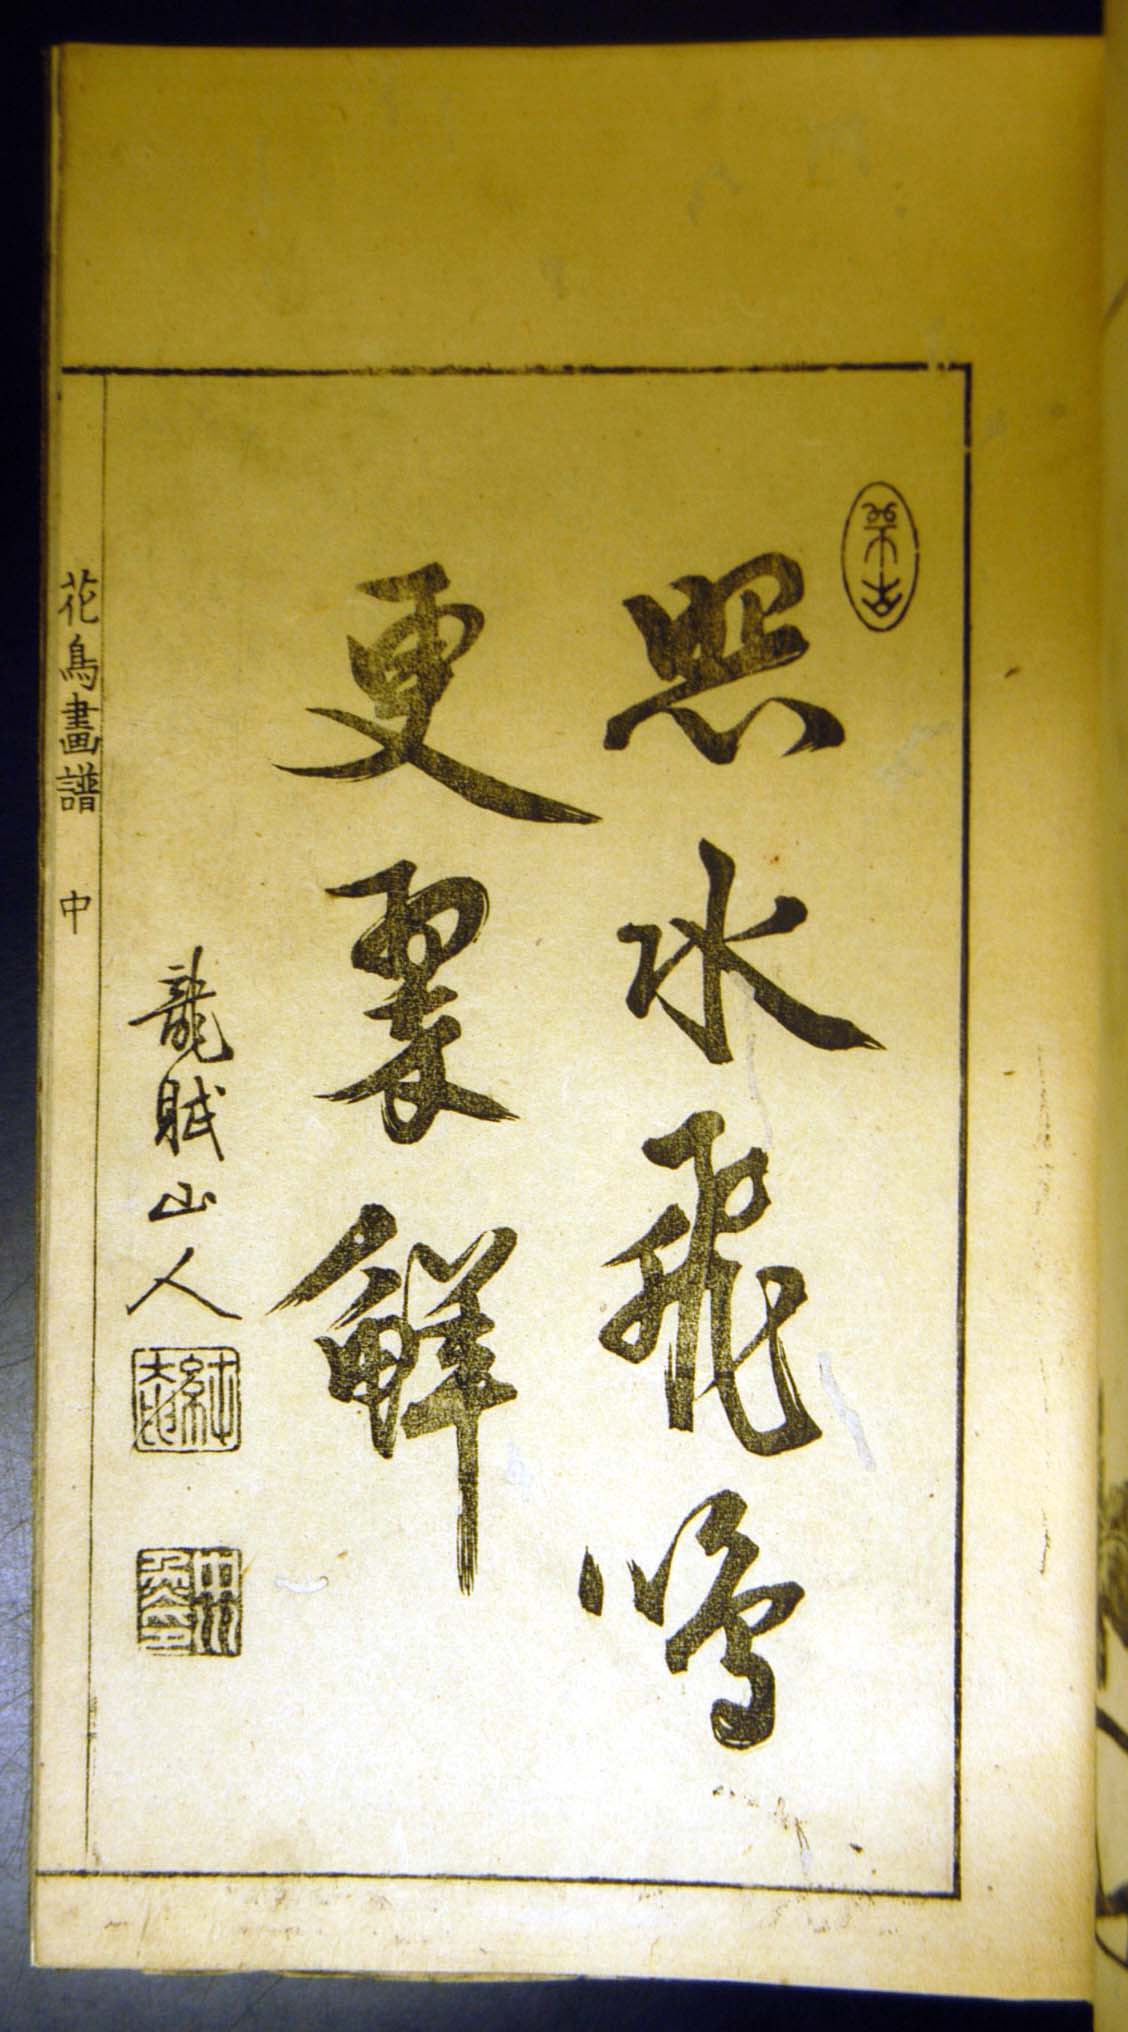 照水飛鳴
更裏鮮
龍賦山人
花鳥畫譜 中